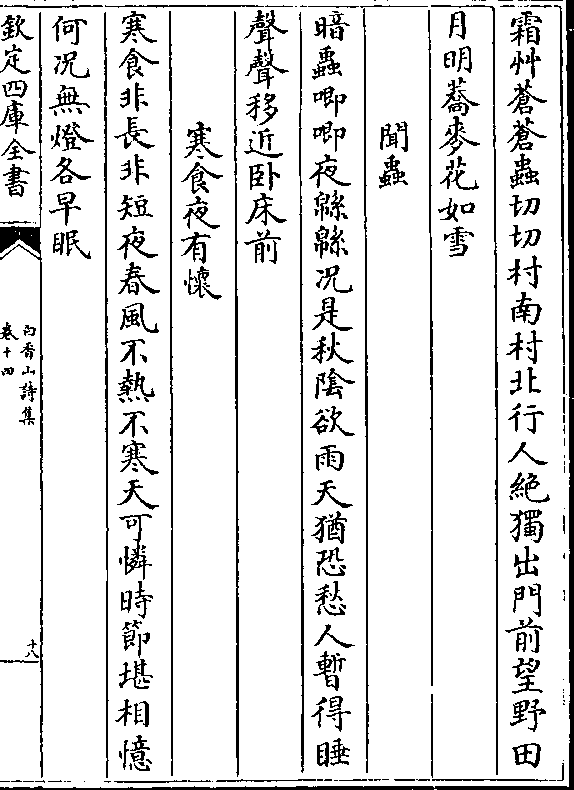 霜艸蒼蒼蟲切切村南村北行人絶獨出門前望野田
月明蕎麥花如雪
聞蟲
暗蟲唧唧夜緜緜况是秋陰欲雨天猶恐愁人暫得睡
聲聲移近卧床前
寒食夜有懷
寒食非長非短夜春風不熱不寒天可憐時節堪相憶
何况無燈各早眠
欽定四庫全書
白香山詩集
卷十四
十八